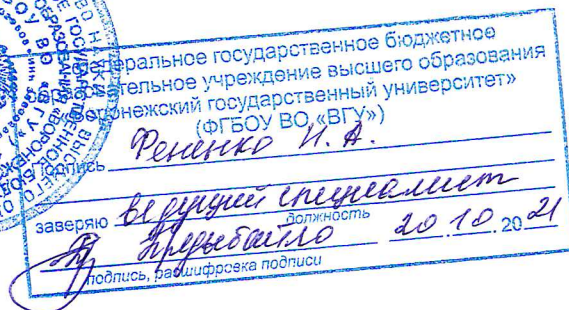 Федеральное государственное бюджетное
образовательное учреждение высшего образования
«Воронежский государственный университет»
(ФГБОУ ВО «ВГУ»)
Подпись Фененко Н. А.
заверяю ведущий специалист
должность
20.10.2021
подпись, расшифровка подписи